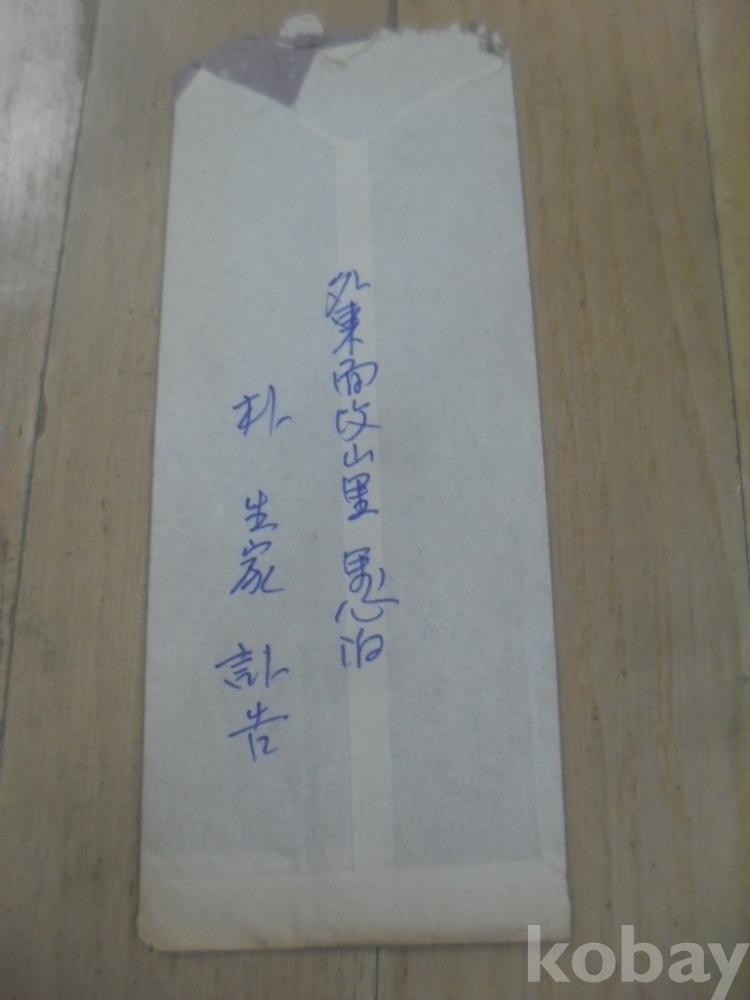 外東面汶山里 愚泊
朴 生家 訃告
kobay